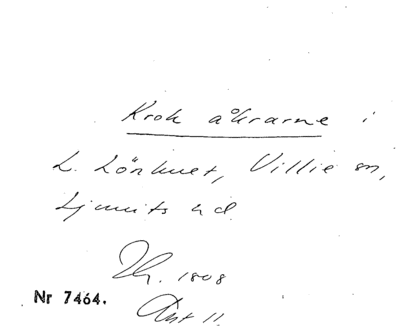 Krok åkrarne i
L. Lönhuet, Villie sn,
Ljunits hd.
Th. 1808
Nr 7464.
Akt 11.